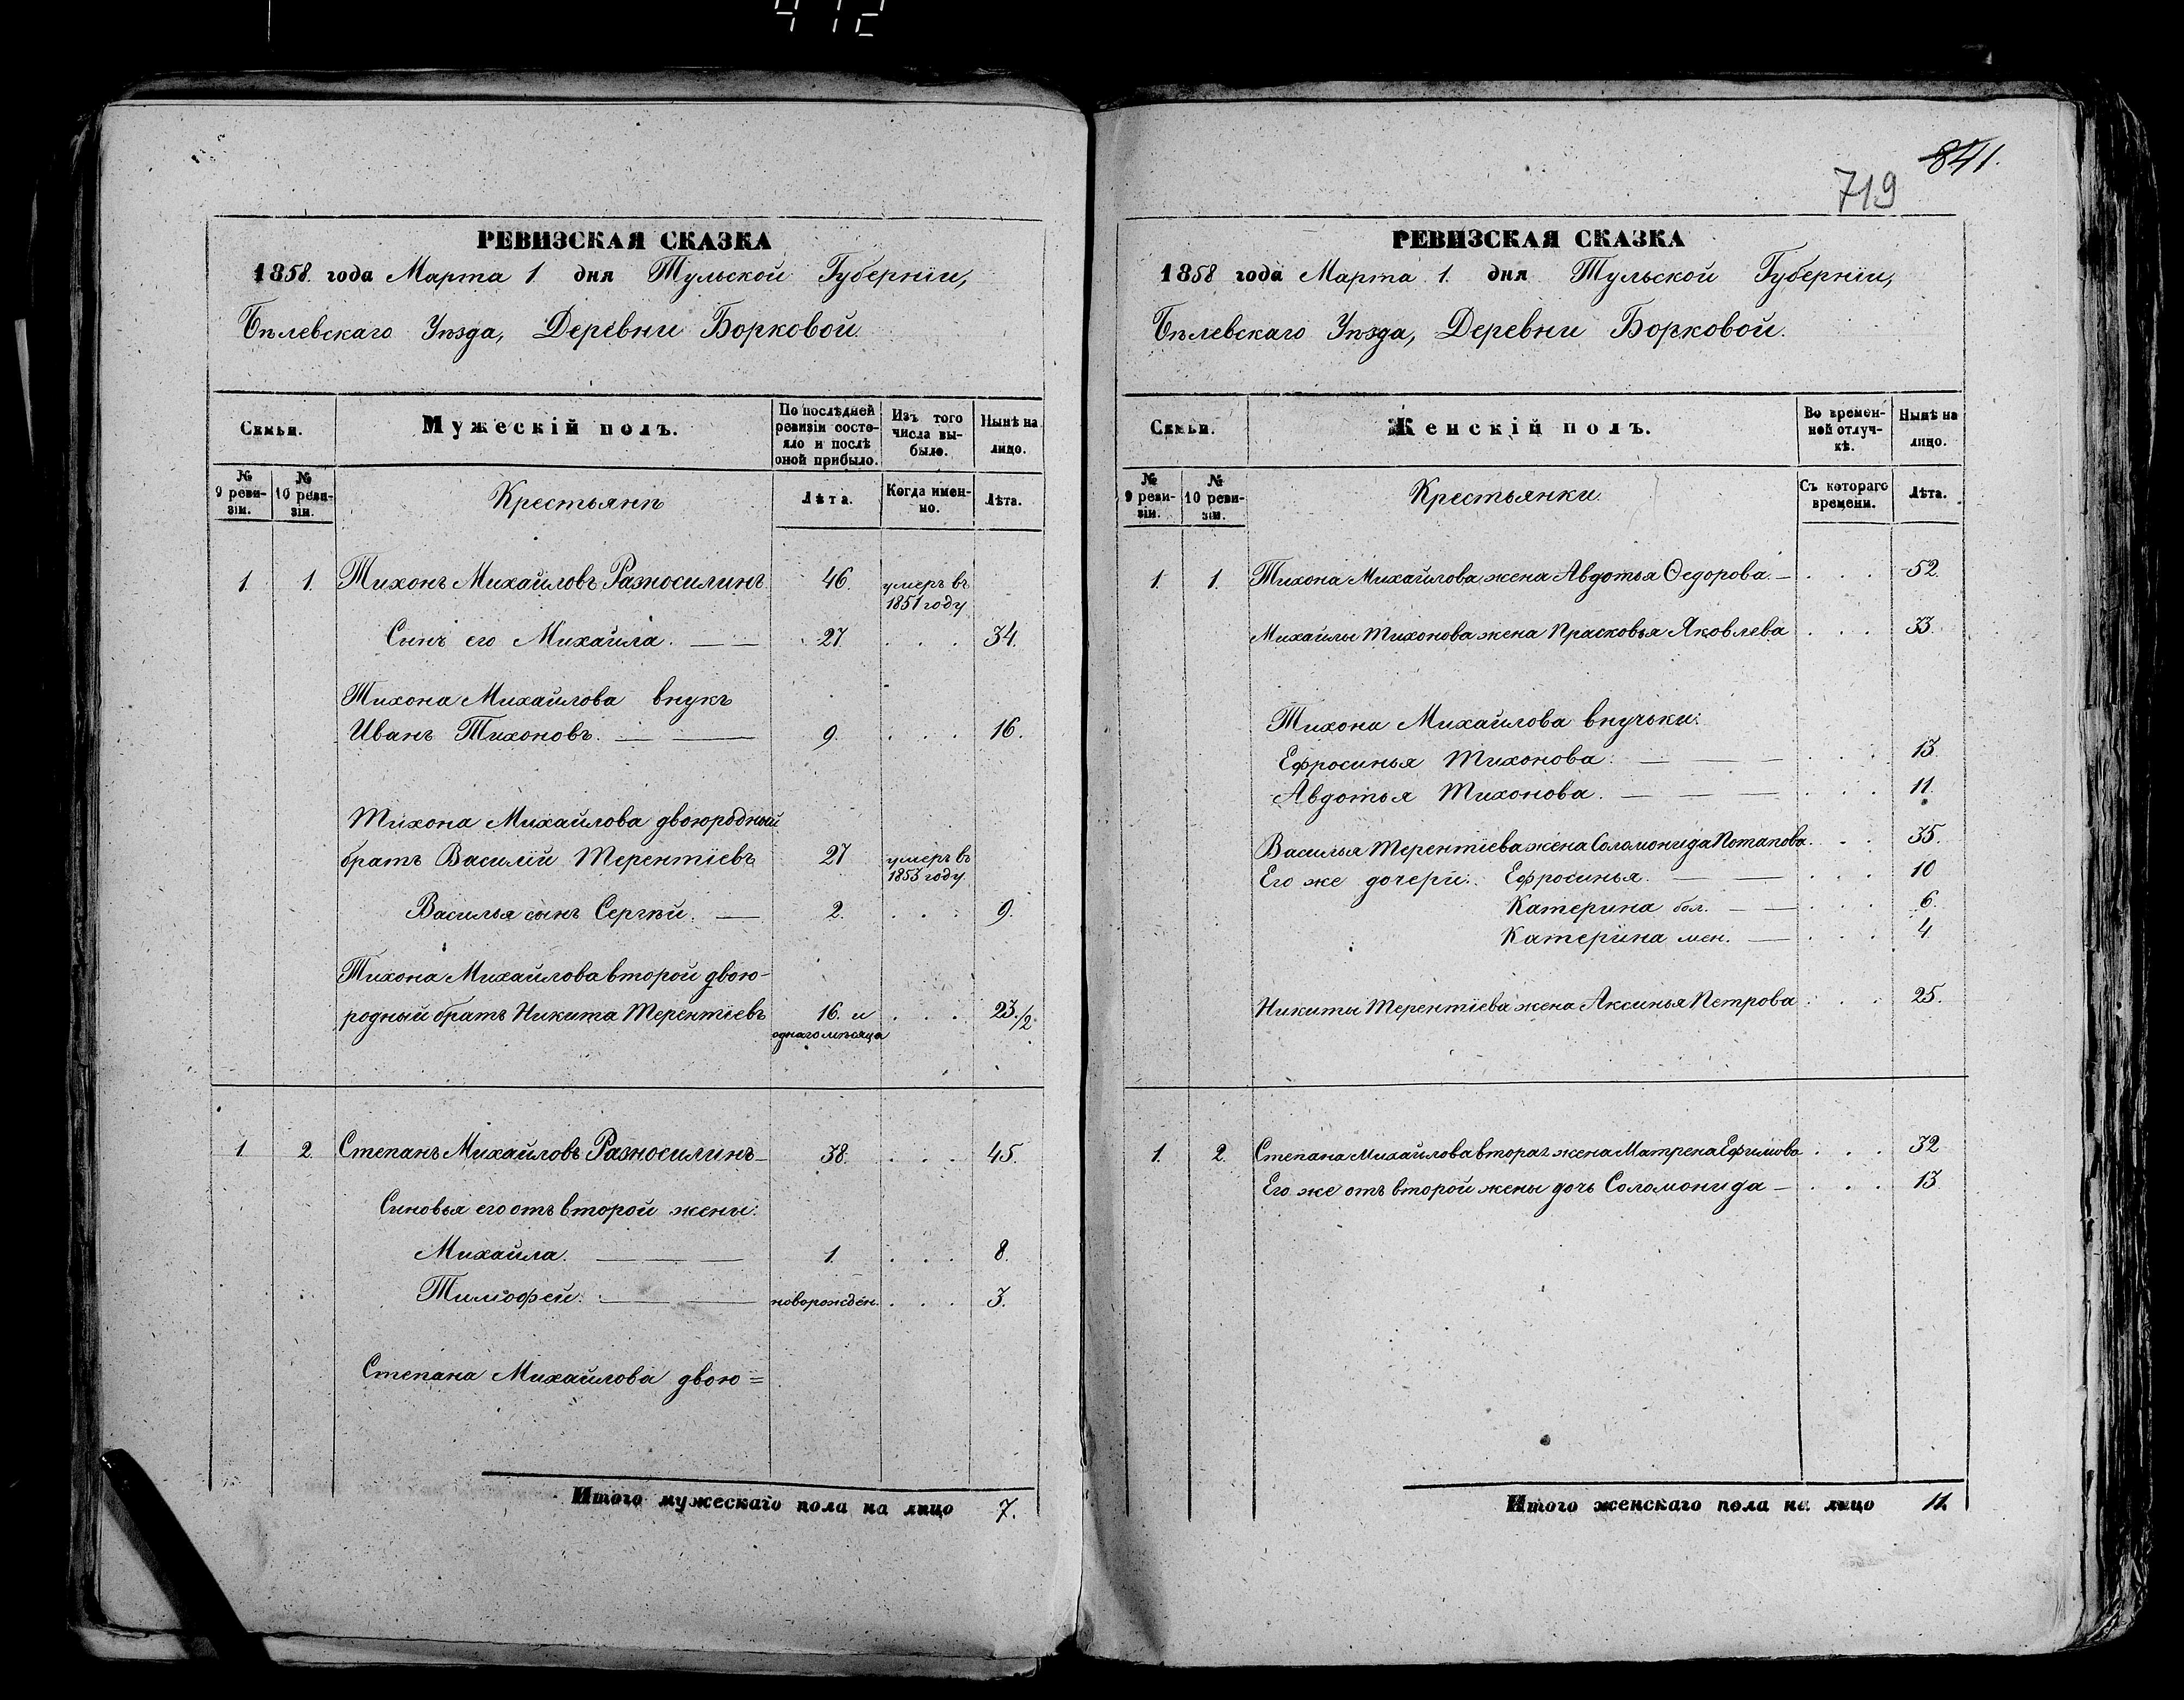 412
РЕВИЗСКАЯ СКАЗКА
1858. года Марта 1. дня Тульской Губерніи,
Бѣлевскаго Уѣзда, Деревни Борковой.
Семьи.
Мужескій полъ.
По послѣдней ревизіи состояло и послѣ оной прибыло.
Изъ того числа выбыло.
Нынѣ на лицо.
№ 9 ревизіи.
№ 10 ревизіи.
Крестьянѣ
Лѣта.
Когда именно.
Лѣта.
1. 1. Тихонъ Михайловъ Разносилинъ 46. умеръ въ
1851 году
Сынъ его Михайла. 27. . . . 34.
Тихона Михайлова внукъ
Иванъ Тихоновъ. 9. . . . 16.
Тихона Михайлова двоюродный
братъ Василій Терентіевъ 27 умеръ въ
1853 году
Василья сынъ Сергѣй. 2. . . . 9.
Тихона Михайлова второй двою-
родный братъ Никита Терентіевъ 16. и . . . 23./2.
однаго мѣсяца
1. 2. Степанъ Михайловъ Разносилинъ 38. . . . 45.
Синовья его отъ второй жены:
Михайла. 1. . . . 8.
Тимофей. новорожден. . . . 3.
Степана Михайлова двою=
Итого мужескаго пола на лицо 7.
841.
719
РЕВИЗСКАЯ СКАЗКА
1858 года Марта 1. дня Тульской Губерніи,
Бѣлевскаго Уѣзда, Деревни Борковой.
Семьи.
Женскій полъ.
Во временной отлучкѣ.
Нынѣ на лицо.
№ 9 ревизіи.
№ 10 ревизіи.
Крестьянки.
Съ котораго времени.
Лѣта.
1. 1. Тихона Михайлова жена Авдотья Ѳедорова. . . . 52.
Михайлы Тихонова жена Прасковья Яковлева . . . 33.
Тихона Михайлова внучьки:
Ефросинья Тихонова. . . . 13.
Авдотья Тихонова. . . . 11.
Василья Терентіева жена Соломонида Потапова. . . . 35.
Его же дочери: Ефросинья. . . . 10
Катерина бол. . . . 6.
Катерина мен. . . . 4.
Никиты Терентіева жена Аксинья Петрова . . . 25.
1. 2. Степана Михайлова вторая жена Матрена Ефимова . . . 32
Его же отъ второй жены дочь Соломонида . . . 13
Итого женскаго пола на лицо 11.